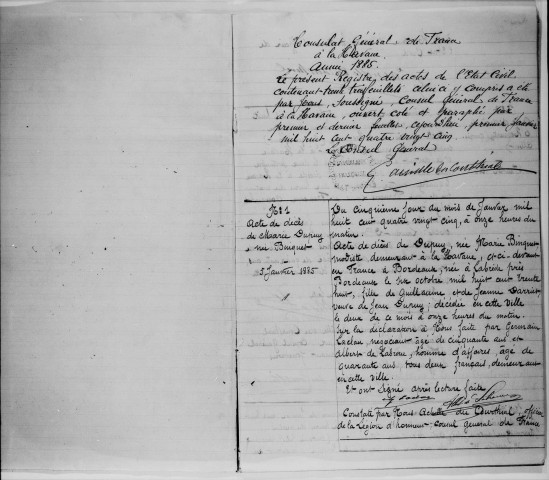 Consulat Général de France
à la Havane
Année 1885.
Le présent Registre des actes de l'Etat Civil,
contenant trente trois feuillets celui-ci y compris a été
par Nous, Soussigné, Consul Général de France
à la Havane, ouvert, coté et paraphé par
premier et dernier feuillet, cejourd'hui, premier Janvier
mil huit cent quatre vingt cinq
Le Consul Général
No 1
Acte de décès
de Marie Dupuy
née Binquet
5 Janvier 1885
Du cinquième jour du mois de Janvier mil
huit cent quatre vingt cinq, à onze heures du
matin.
Acte de décès de Dupuy, née Marie Binquet
modiste demeurant à la Havane, et ci-devant
en France à Bordeaux, née à Cabride près
Bordeaux le six octobre mil huit cent trente
huit, fille de Guillaume et de Jeanne
veuve de Jean Dupuy; décédée en cette ville
le deux de ce mois à onze heures du matin.
Sur la déclaration à Nous faite par Germain
Laclau, négociant âgé de cinquante ans et
Albert de Lasrow, homme d'affaires, âgé de
quarante ans, tous deux français, demeurant
en cette ville.
Et ont signé après lecture faite
Constaté par Nous Achille du Courthial, officier
de la Légion d'honneur, Consul général de France